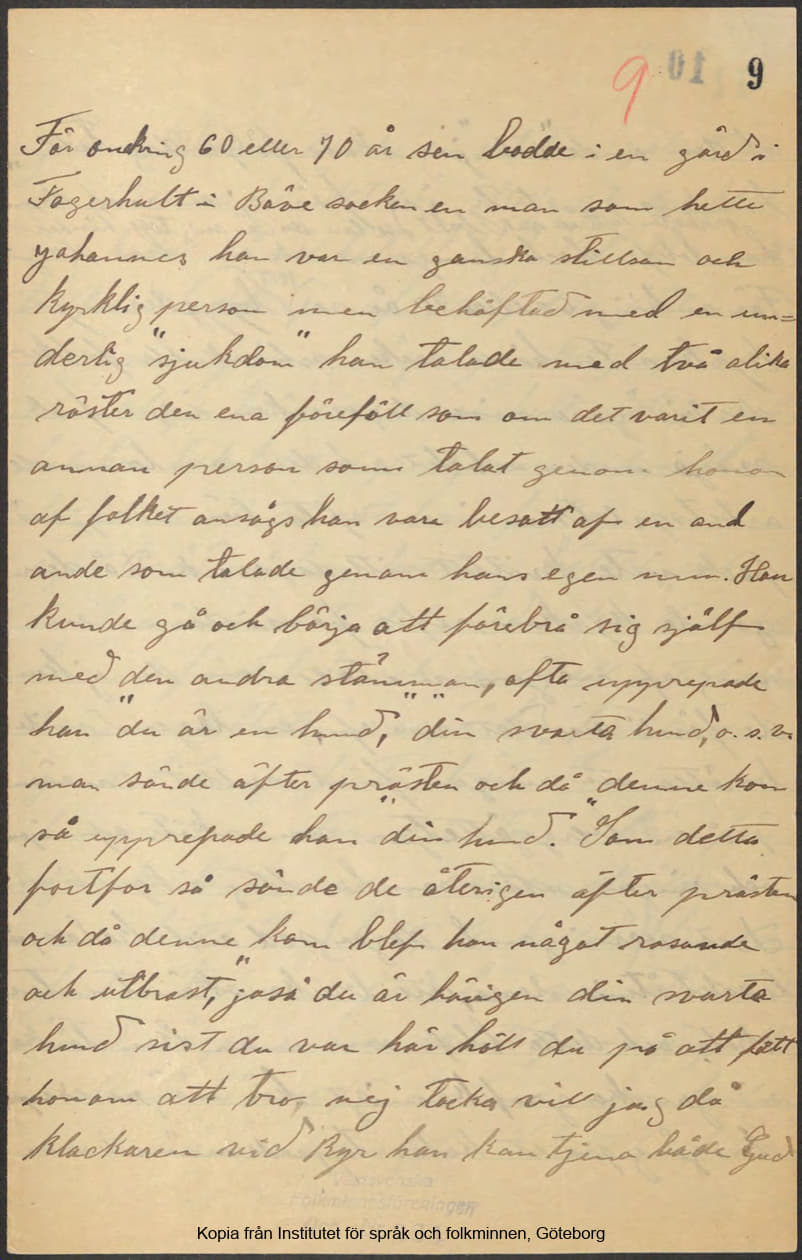 9 10 9
För omkring 60 eller 70 år sen bodde i en gård i
Fagerhult i Bäve socken en man som hette
Johannes han var en ganska stillsam och
kyrklig person men behäftad med en un=
derlig "sjukdom" han talade med två olika
röster den ena föreföll som om det varit en
annan person som talat genom honom
af folket ansågs han vara besatt af en ond
ande som talade genom hans egen mun. Han
kunde gå och börja att förebrå sig självf
med den andra stämman, ofta upprepade
han "du är en hund," "din svarta hund, o. s. v.
man sände äfter prästen och då denne kom
så upprepade han "din hund." Som detta
fortfor så sände de återigen äfter prästen
och då denne kom blef han något rasande
och utbrast, "jaså du är här igen din svarta
hund sist du var här höll du på att fått
honom att tro nej tocka vill jag då
klockaren vid Ryr han kan tjena både Gud
Västsvenska
Folkminnesföreningen
Kopia från Institutet för språk och folkminnen, Göteborg